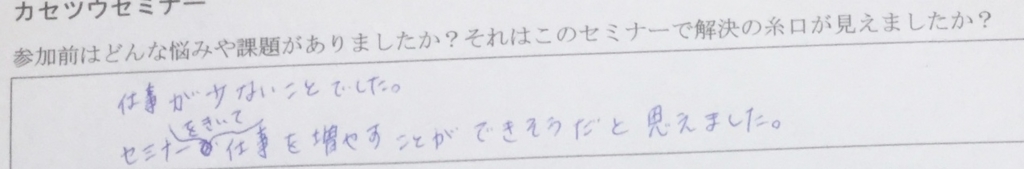 カセツウセミナー
参加前はどんな悩みや課題がありましたか？それはこのセミナーで解決の糸口が見えましたか？
仕事が少ないことでした。
をきいて
セミナー仕事を増やすことができそうだと思えました。